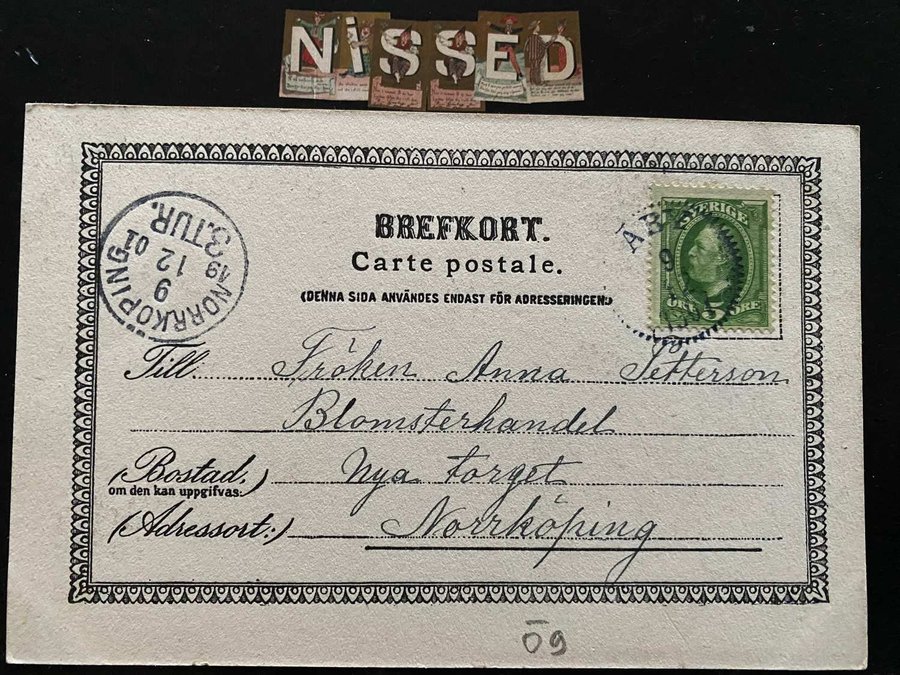 NiSSED
BREFKORT.
Carte postale.
(DENNA SIDA ANVÄNDES ENDAST FÖR ADRESSERINGEN.)
NORRKÖPING
9
12
19 01
3.TUR.
SVERIGE
9
ÖRE 5 ÖRE
Till Fröken Anna Petterson
Blomsterhandel
(Bostad, Nya Torget
om den kan uppgifvas:)
(Adressort:) Norrköping
09